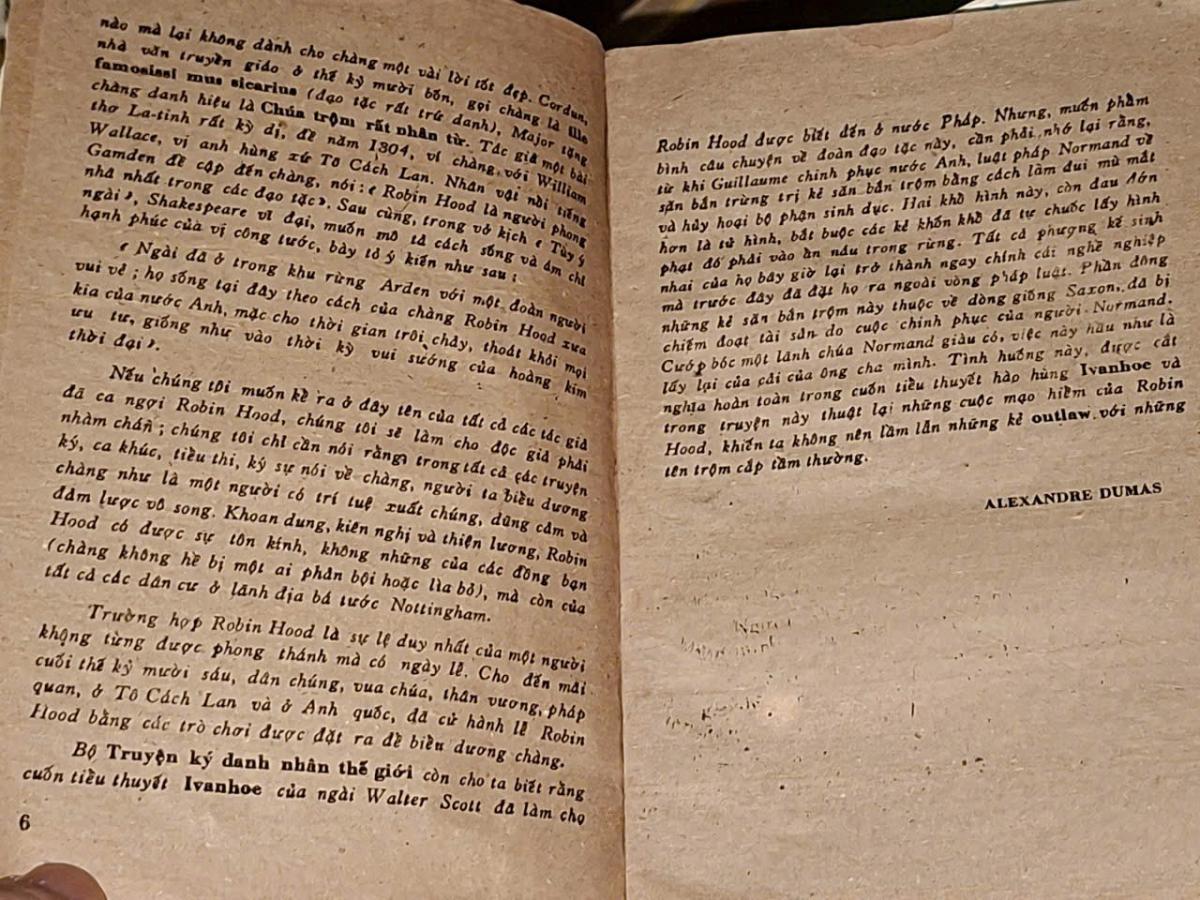 nào mà lại không dành cho chàng một vài lời tốt đẹp. Cordun,
nhà văn truyền giáo ở thế kỷ mười bốn, gọi chàng là ille
famosissi mus sicarius (đạo tặc rất trứ danh), Major tặng
chàng danh hiệu là Chúa trộm rất nhân từ. Tác giả một bài
thơ La-tinh rất kỳ dị, đề năm 1304, ví chàng với William
Wallace, vị anh hùng xứ Tô Cách Lan. Nhân vật nổi tiếng
Gamden đề cập đến chàng, nói : « Robin Hood là người phong
nhã nhất trong các đạo tặc ». Sau cùng, trong vở kịch « Tùy ý
ngài », Shakespeare vĩ đại, muốn mô tả cách sống và ám chỉ
hạnh phúc của vị công tước, bày tỏ ý kiến như sau :
« Ngài đã ở trong khu rừng Arden với một đoàn người
vui vẻ ; họ sống tại đây theo cách của chàng Robin Hood xưa
kia của nước Anh, mặc cho thời gian trôi chảy, thoát khỏi mọi
ưu tư, giống như vào thời kỳ vui sướng của hoàng kim
thời đại ».
Nếu chúng tôi muốn kể ra ở đây tên của tất cả các tác giả
đã ca ngợi Robin Hood, chúng tôi sẽ làm cho độc giả phải
nhàm chán ; chúng tôi chỉ cần nói rằng, trong tất cả các truyện
ký, ca khúc, tiểu thi, ký sự nói về chàng, người ta biểu dương
chàng như là một người có trí tuệ xuất chúng, dũng cảm và
đảm lược vô song. Khoan dung, kiên nghị và thiện lương, Robin
Hood có được sự tôn kính, không những của các đồng bạn
(chàng không hề bị một ai phản bội hoặc lìa bỏ), mà còn của
tất cả các dân cư ở lãnh địa bá tước Nottingham.
Trường hợp Robin Hood là sự lệ duy nhất của một người
không từng được phong thánh mà có ngày lễ. Cho đến mãi
cuối thế kỷ mười sáu, dân chúng, vua chúa, thân vương, pháp
quan, ở Tô Cách Lan và ở Anh quốc, đã cử hành lễ Robin
Hood bằng các trò chơi được đặt ra để biểu dương chàng.
Bộ Truyện ký danh nhân thế giới còn cho ta biết rằng
cuốn tiểu thuyết Ivanhoe của ngài Walter Scott đã làm cho
6
Robin Hood được biết đến ở nước Pháp. Nhưng, muốn phẩm
bình câu chuyện về đoàn đạo tặc này, cần phải nhớ lại rằng,
từ khi Guillaume chinh phục nước Anh, luật pháp Normand về
săn bắn trừng trị kẻ săn bắn trộm bằng cách làm đui mù mắt
và hủy hoại bộ phận sinh dục. Hai khổ hình này, còn đau đớn
hơn là tử hình, bắt buộc các kẻ khốn khổ đã tự chuốc lấy hình
phạt đó phải vào ẩn náu trong rừng. Tất cả phương kế sinh
nhai của họ bây giờ lại trở thành ngay chính cái nghề nghiệp
mà trước đây đã đặt họ ra ngoài vòng pháp luật. Phần đông
những kẻ săn bắn trộm này thuộc về dòng giống Saxon, đã bị
chiếm đoạt tài sản do cuộc chinh phục của người Normand.
Cướp bóc một lãnh chúa Normand giàu có, việc này hầu như là
lấy lại của cải của ông cha mình. Tình huống này, được cắt
nghĩa hoàn toàn trong cuốn tiểu thuyết hào hùng Ivanhoe và
trong truyện này thuật lại những cuộc mạo hiểm của Robin
Hood, khiến ta không nên lầm lẫn những kẻ outlaw với những
tên trộm cắp tầm thường.
ALEXANDRE DUMAS